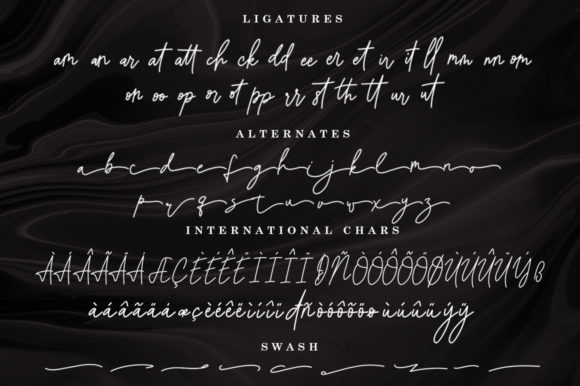 LIGATURES
am an ar at att ch ck dd ee er et ir it ll mm nn om
on oo op or ot pp rr st th tt ur ut
ALTERNATES
a b c d e f g h i j k l m n o
p r q s t u v w x y z
INTERNATIONAL CHARS
ÀÁÂÃÄÅÆÇÈÉÊËÌÍÎÏÐÑÒÓÔÕÖØÙÚÛÜÝß
àáâãäåæçèéêëìíîïđñòóôõöøùúûüýÿ
SWASH